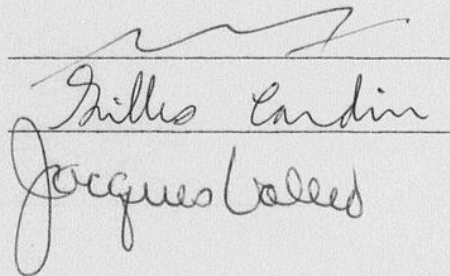 Gilles Cardin
Jacques Vallée